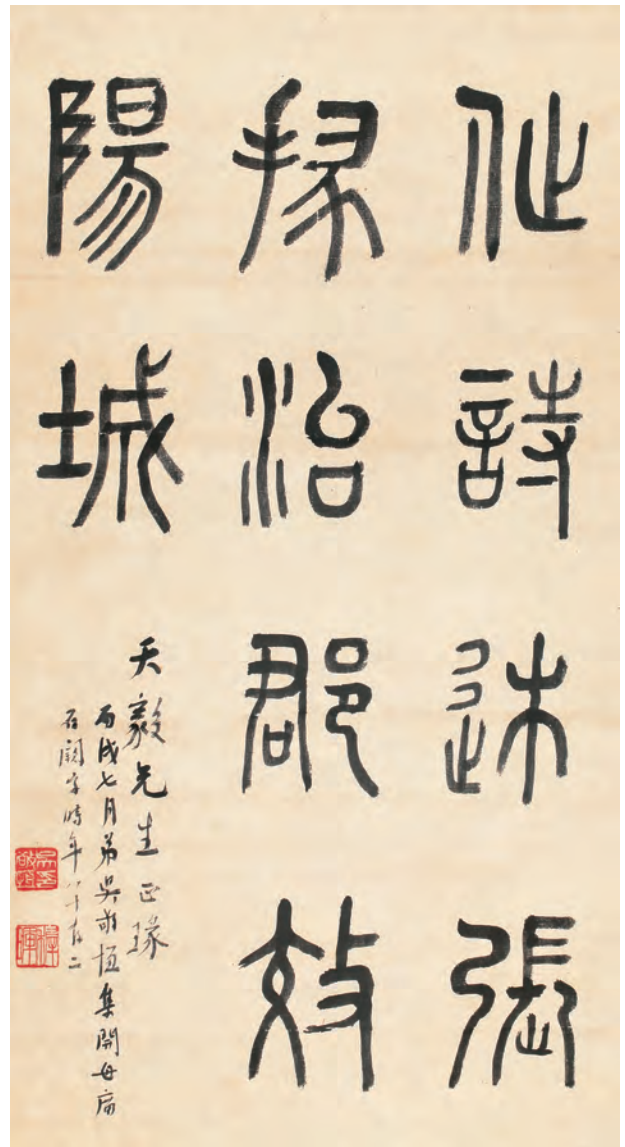 作詩述張
掾治郡效
陽城
天毅先生正瑑
丙戌七月弟吳敬恒集開母廟
石闕字時年八十有二